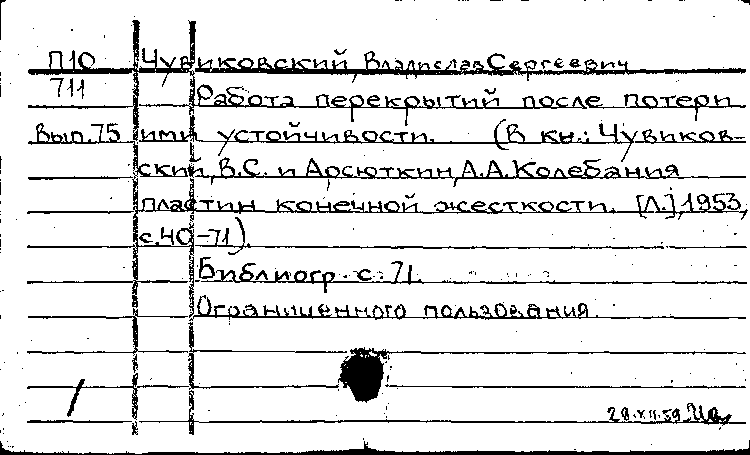 П10 Чувиковский, Владислав Сергеевич
711 Работа перекрытий после потери
Вып.75 ими устойчивости. (В кн.: Чувиков-
ский, В.С. и Арсюткин, А.А. Колебания
пластин конечной жесткости. [Л.], 1953,
с.40-71).
Библиогр. с. 71.
Ограниченного пользования.
28.XII.59